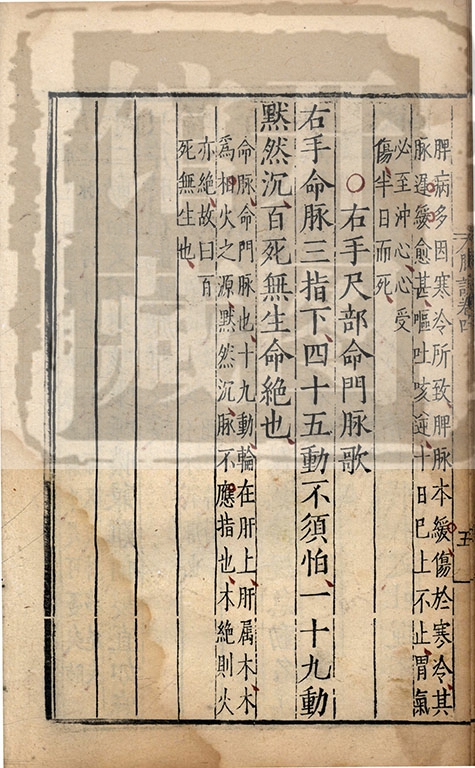 脾病多因寒冷所致脾脉本緩傷於寒冷其
脉遲緩愈甚嘔吐咳逆十日已上不止胃氣
必至沖心心受
傷半日而死
○右手尺部命門脉歌
右手命脉三指下四十五動不須怕一十九動
默然沉百死無生命絶也
命脉命門脉也十九動輪在肝上肝属木木
爲相火之源默然沉脉不應指也木絶則火
亦絶故曰百
死無生也
脉訣卷四
五